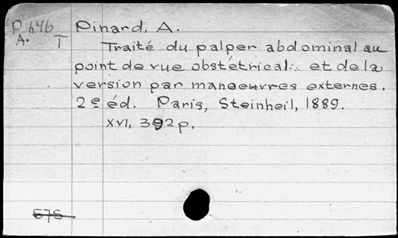 P 646 Pinard, A.
A. T
Traité du palper abdominal au
point de vue obstétrical et de la
version par manoeuvres externes.
2e éd. Paris, Steinheil, 1889.
XVI, 392 p.
676